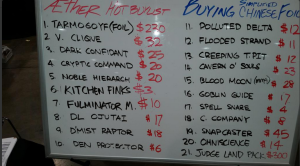 ÆTHER HOT BUYLIST
1. TARMOGOYF (FOIL) $230
2. V. CLIQUE $32
3. DARK CONFIDANT $25
4. CRYPTIC COMMAND $20
5. NOBLE HIERARCH $20
6. KITCHEN FINKS $3
7. FULMINATOR M. $10
8. DL OJUTAI $17
9. DMIST RAPTOR $18
10. DEN PROTECTOR $6
BUYING CHINESE FOIL
SIMPLIFIED
11. POLLUTED DELTA $12
12. FLOODED STRAND $11
13. CREEPING T. PIT $12
14. CAVERN O' SOULS $23
15. BLOOD MOON $28
16. GOBLIN GUIDE $17
17. SPELL SNARE $4
18. C. COMPANY $8
19. SNAPCASTER $45
20. OMNISCIENCE $14
21. JUDGE LAND PACK $500